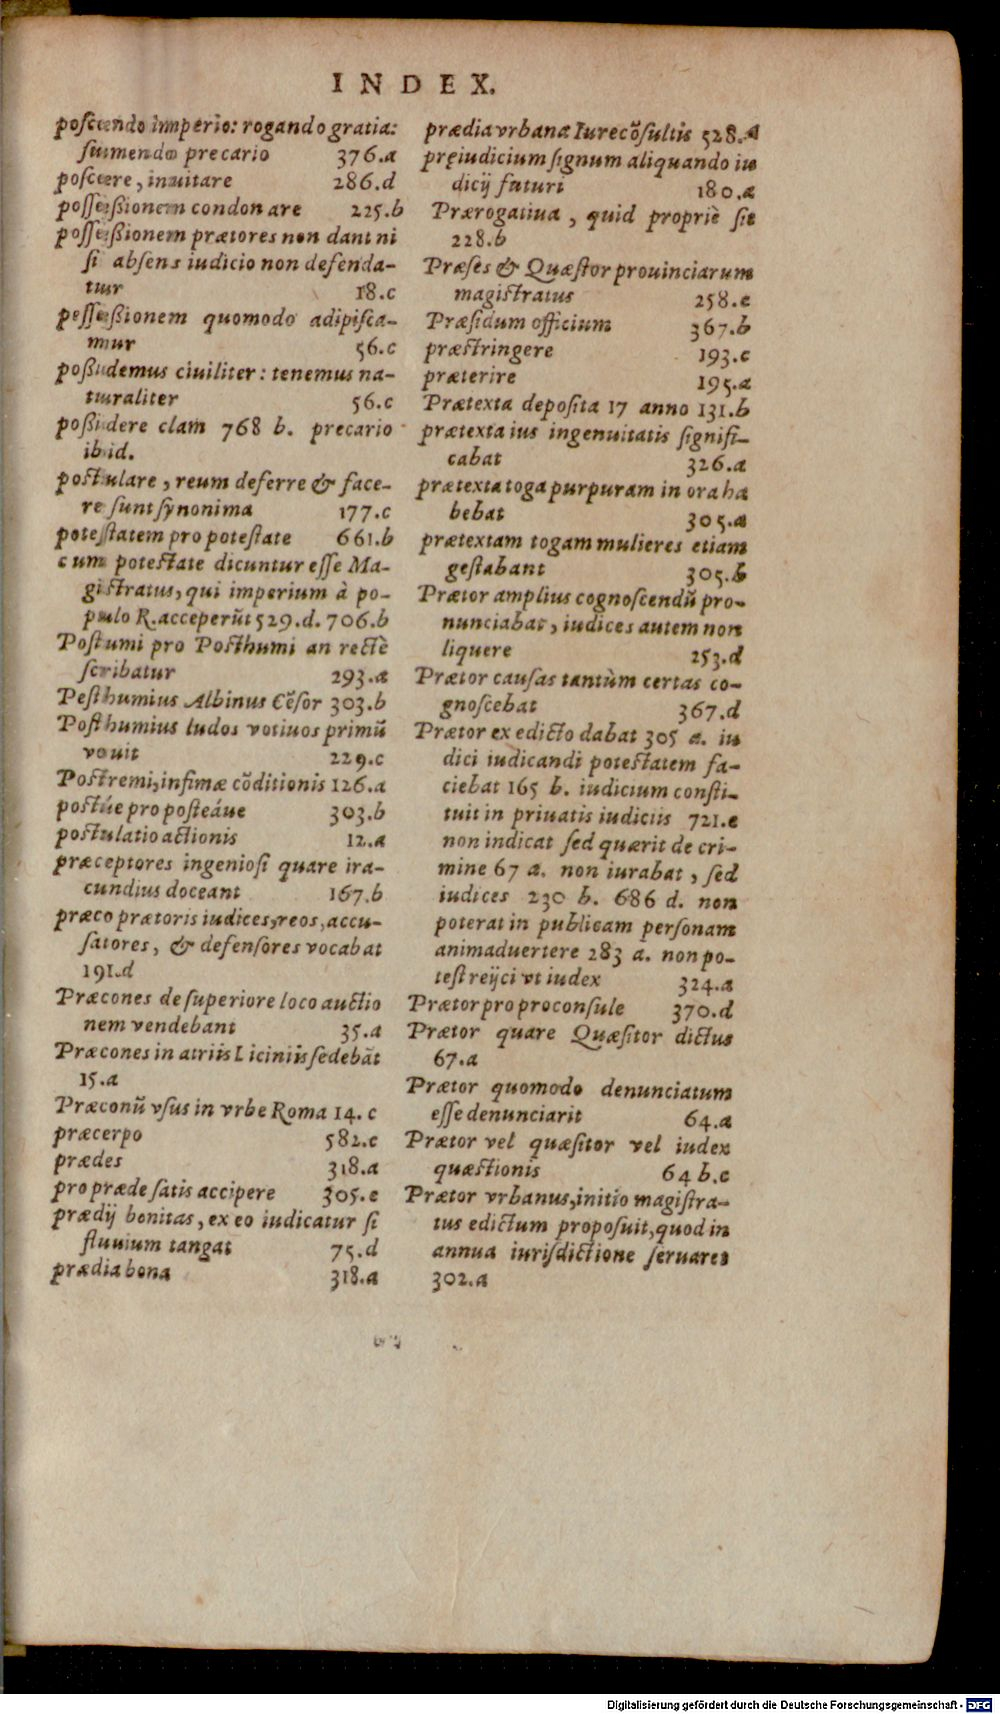 INDEX.
poscendo imperio: rogando gratia:
sumendo precario 376.a
poscere, inuitare 286.d
possessionem condonare 225.b
possessionem prætores non dant ni
si absens iudicio non defenda-
tur 18.c
possessionem quomodo adipisca-
mur 56.c
possidemus ciuiliter: tenemus na-
turaliter 56.c
possidere clam 768 b. precario
ibid.
postulare, reum deferre & face-
re sunt synonima 177.c
potestatem pro potestate 661.b
cum potestate dicuntur esse Ma-
gistratus, qui imperium à po-
pulo R. acceperũt 529.d. 706.b
Postumi pro Posthumi an rectè
scribatur 293.a
Posthumius Albinus Cẽsor 303.b
Posthumius ludos votiuos primũ
vouit 229.c
Postremi, infimæ cõditionis 126.a
postúe pro posteáue 303.b
postulatio actionis 12.a
præceptores ingeniosi quare ira-
cundius doceant 167.b
præco prætoris iudices, reos, accu-
satores, & defensores vocabat
191.d
Præcones de superiore loco auctio
nem vendebant 35.a
Præcones in atriis Liciniis sedebãt
15.a
Præconũ vsus in vrbe Roma 14.c
præcerpo 582.c
prædes 318.a
pro præde satis accipere 305.e
prædij bonitas, ex eo iudicatur si
fluuium tangat 75.d
prædia bona 318.a
prædia vrbana Iurecõsultis 528.d
pręiudicium signum aliquando iu
dicij futuri 180.a
Prærogatiua, quid propriè sit
228.b
Præses & Quæstor prouinciarum
magistratus 258.e
Præsidum officium 367.b
præstringere 193.c
præterire 195.a
Prætexta deposita 17 anno 131.b
prætexta ius ingenuitatis signifi-
cabat 326.a
prætexta toga purpuram in ora ha
bebat 305.a
prætextam togam mulieres etiam
gestabant 305.b
Prætor amplius cognoscendũ pro-
nunciabat, iudices autem non
liquere 253.d
Prætor causas tantùm certas co-
gnoscebat 367.d
Prætor ex edicto dabat 305 a. iu
dici iudicandi potestatem fa-
ciebat 165 b. iudicium consti-
tuit in priuatis iudiciis 721.e
non indicat sed quærit de cri-
mine 67 a. non iurabat, sed
iudices 230 b. 686 d. non
poterat in publicam personam
animaduertere 283 a. non po-
test reijci vt iudex 324.a
Prætor pro proconsule 370.d
Prætor quare Quæsitor dictus
67.a
Prætor quomodo denunciatum
esse denunciarit 64.a
Prætor vel quæsitor vel iudex
quæstionis 64 b.c
Prætor vrbanus, initio magistra-
tus edictum proposuit, quod in
annua iurisdictione seruaret
302.a
Digitalisierung gefördert durch die Deutsche Forschungsgemeinschaft - DFG